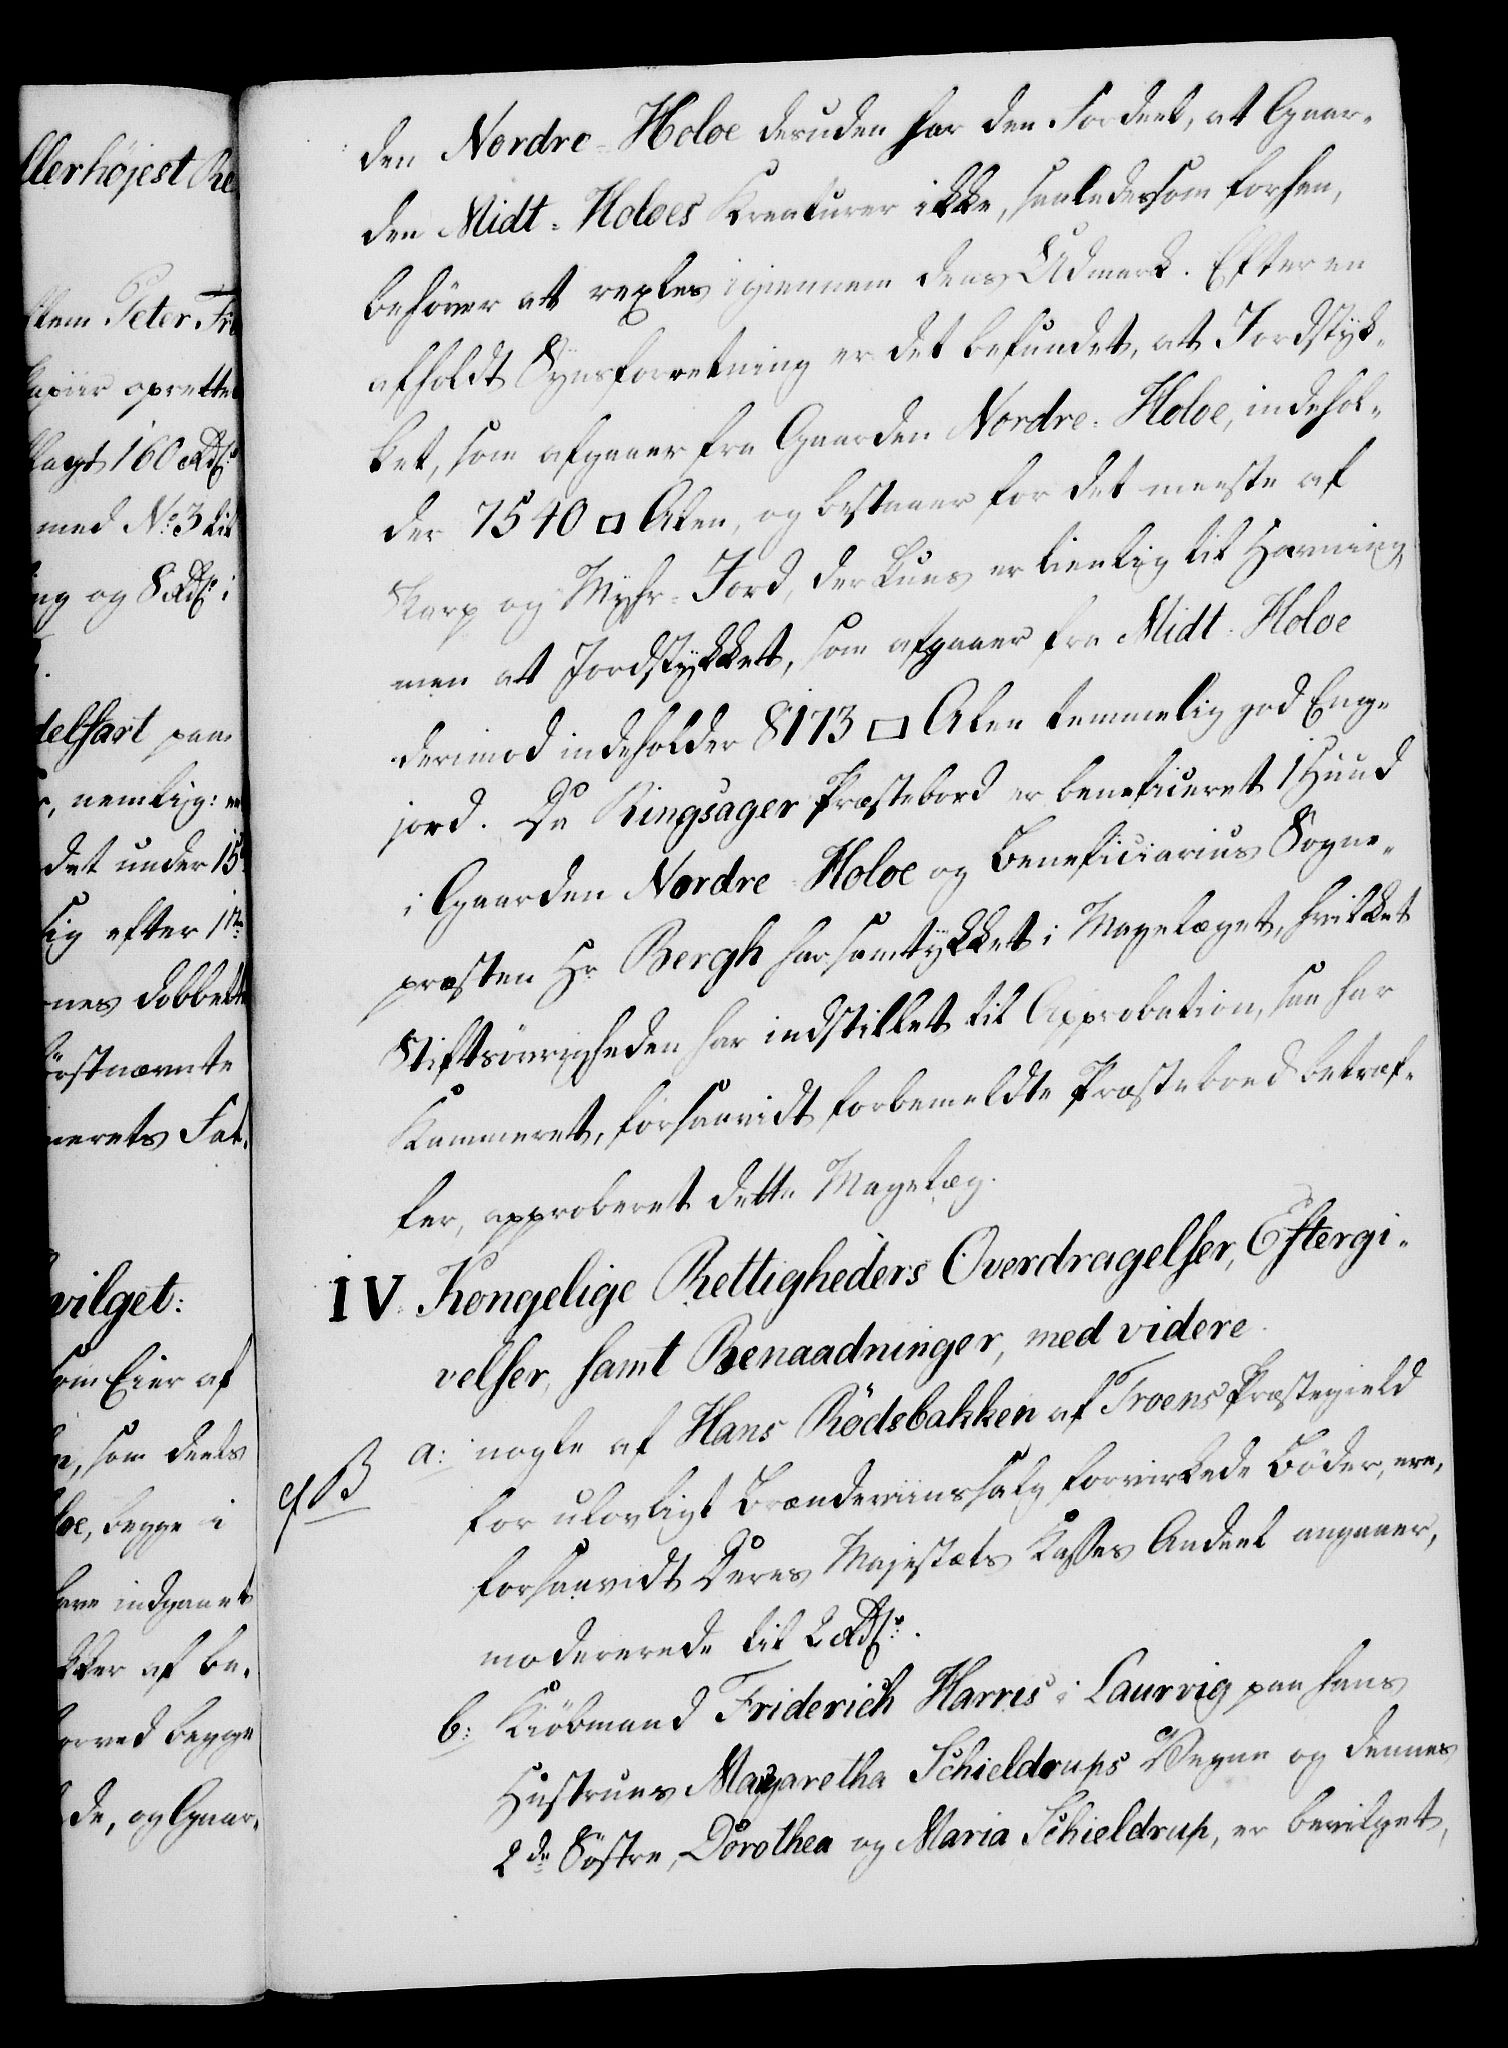 llerhøjest Re
llem Peter Fri
apiir oprettet
lagt 160 Rdlr
med No 3 til
ng og 8 Rdlr i
delfart paa
r, nemlig: en
det under 15
lig efter 1
nes dobbelte
örstnævnte
merets Fat.
vilget:
om Eier af
n, som deels
loe, begge i
have indgaaet
kker af be.
orved begge
de, og Gaar.
den Nordre-Holoe desuden har den Fordeel, at Gaar-
den Midt-Holoes Kreaturer ikke, saaledes som forhen,
behöver at rexles igiennem dens Udmark. Efter en
afholdt Synsforretning er det befundet, at Jordstyk-
ket, som afgaaer fra Gaarden Nordre-Holoe, indehol-
der 7540 □ Alen, og bestaaer for det meeste af
Skarp og Myhr-Jord, der kuns er tienlig til Havning,
men at Jordstykket, som afgaaer fra Midt-Holoe
derimod indeholder 8173 □ Alen temmelig god Eng-
jord. Da Ringsager Præstebord er beneficeret 1 Huud
i Gaarden Nordre-Holoe og Beneficiarius Sogne-
præsten Hr Bergh har samtykket i Magelæget, hvilket
Stiftsövrigheden har indstillet til Approbation, saa har
Kammeret, forsaavidt forbemeldte Præstebord betræf-
fer, approberet dette Magelæg.
IV. Kongelige Rettigheders Overdragelser, Eftergi-
velser, samt Benaadninger, med videre.
a: nogle af Hans Rödsbakken af Froens Præstegield
for ulovligt Brændeviinssalg forvirkede Böder, ere,
forsaavidt Deres Majestæts Kasses Andeel angaaer,
modererede til 2 Rdlr.
b: Kiöbmand Friderich Harres i Laurvig paa hans
Hustrues Magaretha Schieldrups Vegne og dennes
2de Söstre, Dorothea og Maria Schieldrup, er bevilget,